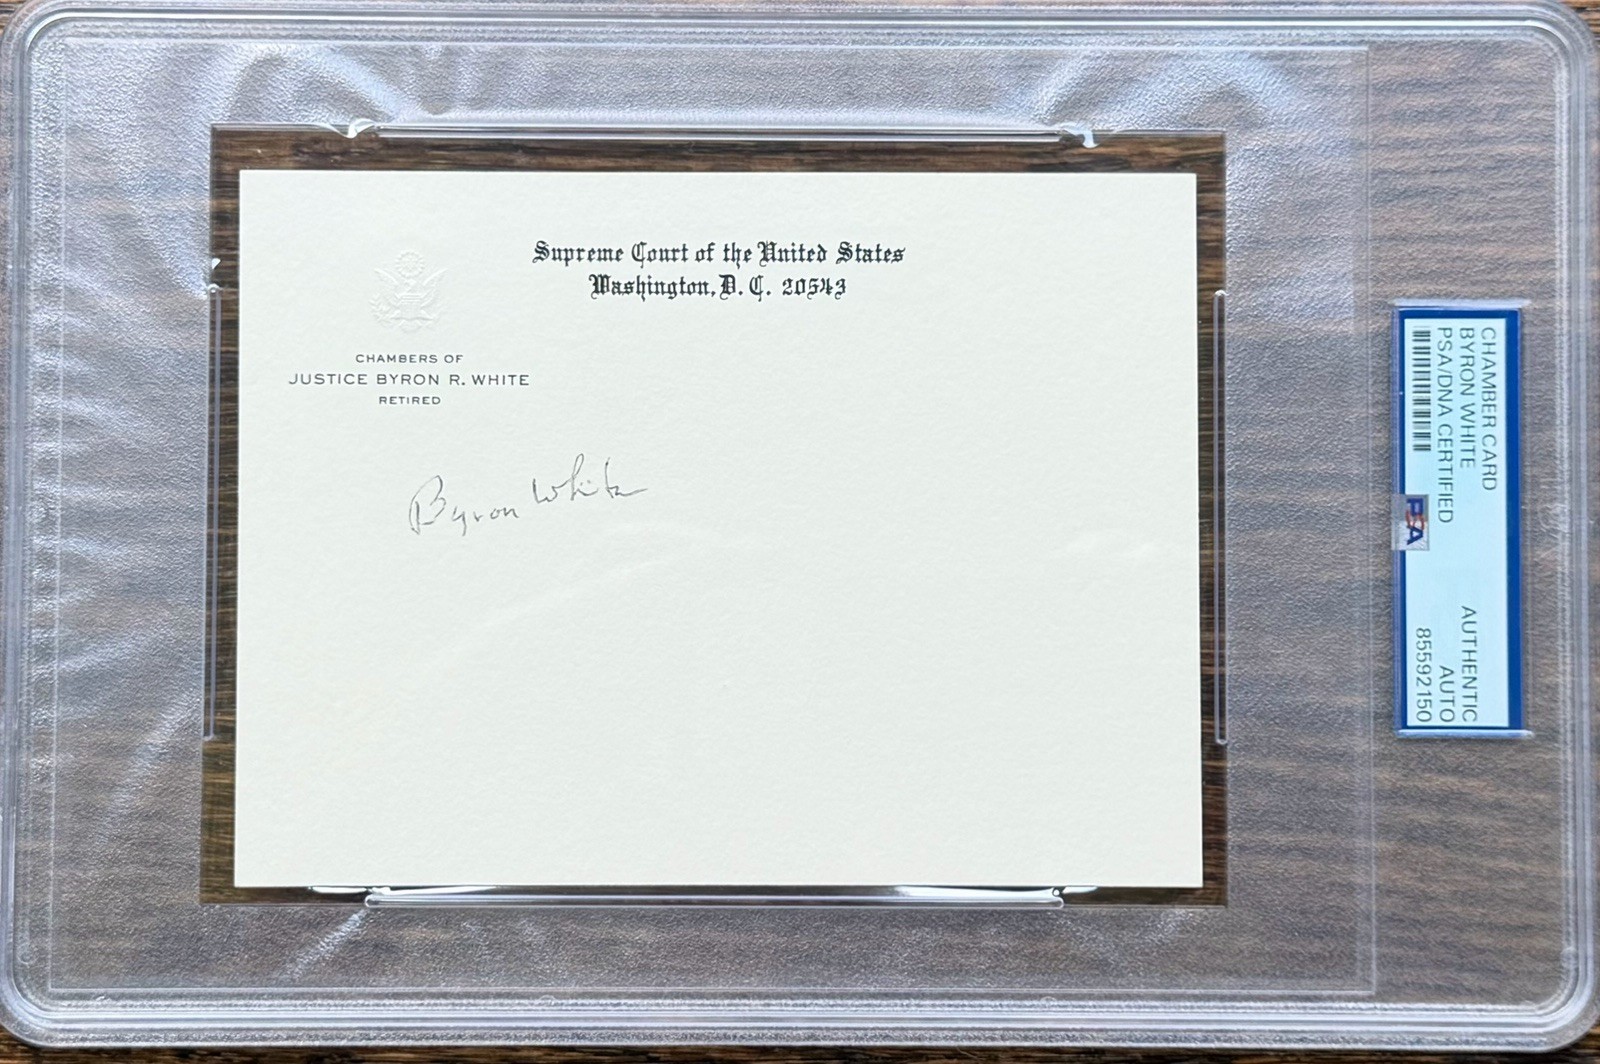 Supreme Court of the United States
Washington, D. C. 20543
CHAMBERS OF
JUSTICE BYRON R. WHITE
RETIRED
Byron White
CHAMBER CARD
BYRON WHITE
PSA/DNA CERTIFIED
AUTHENTIC
AUTO
85592150
PSA